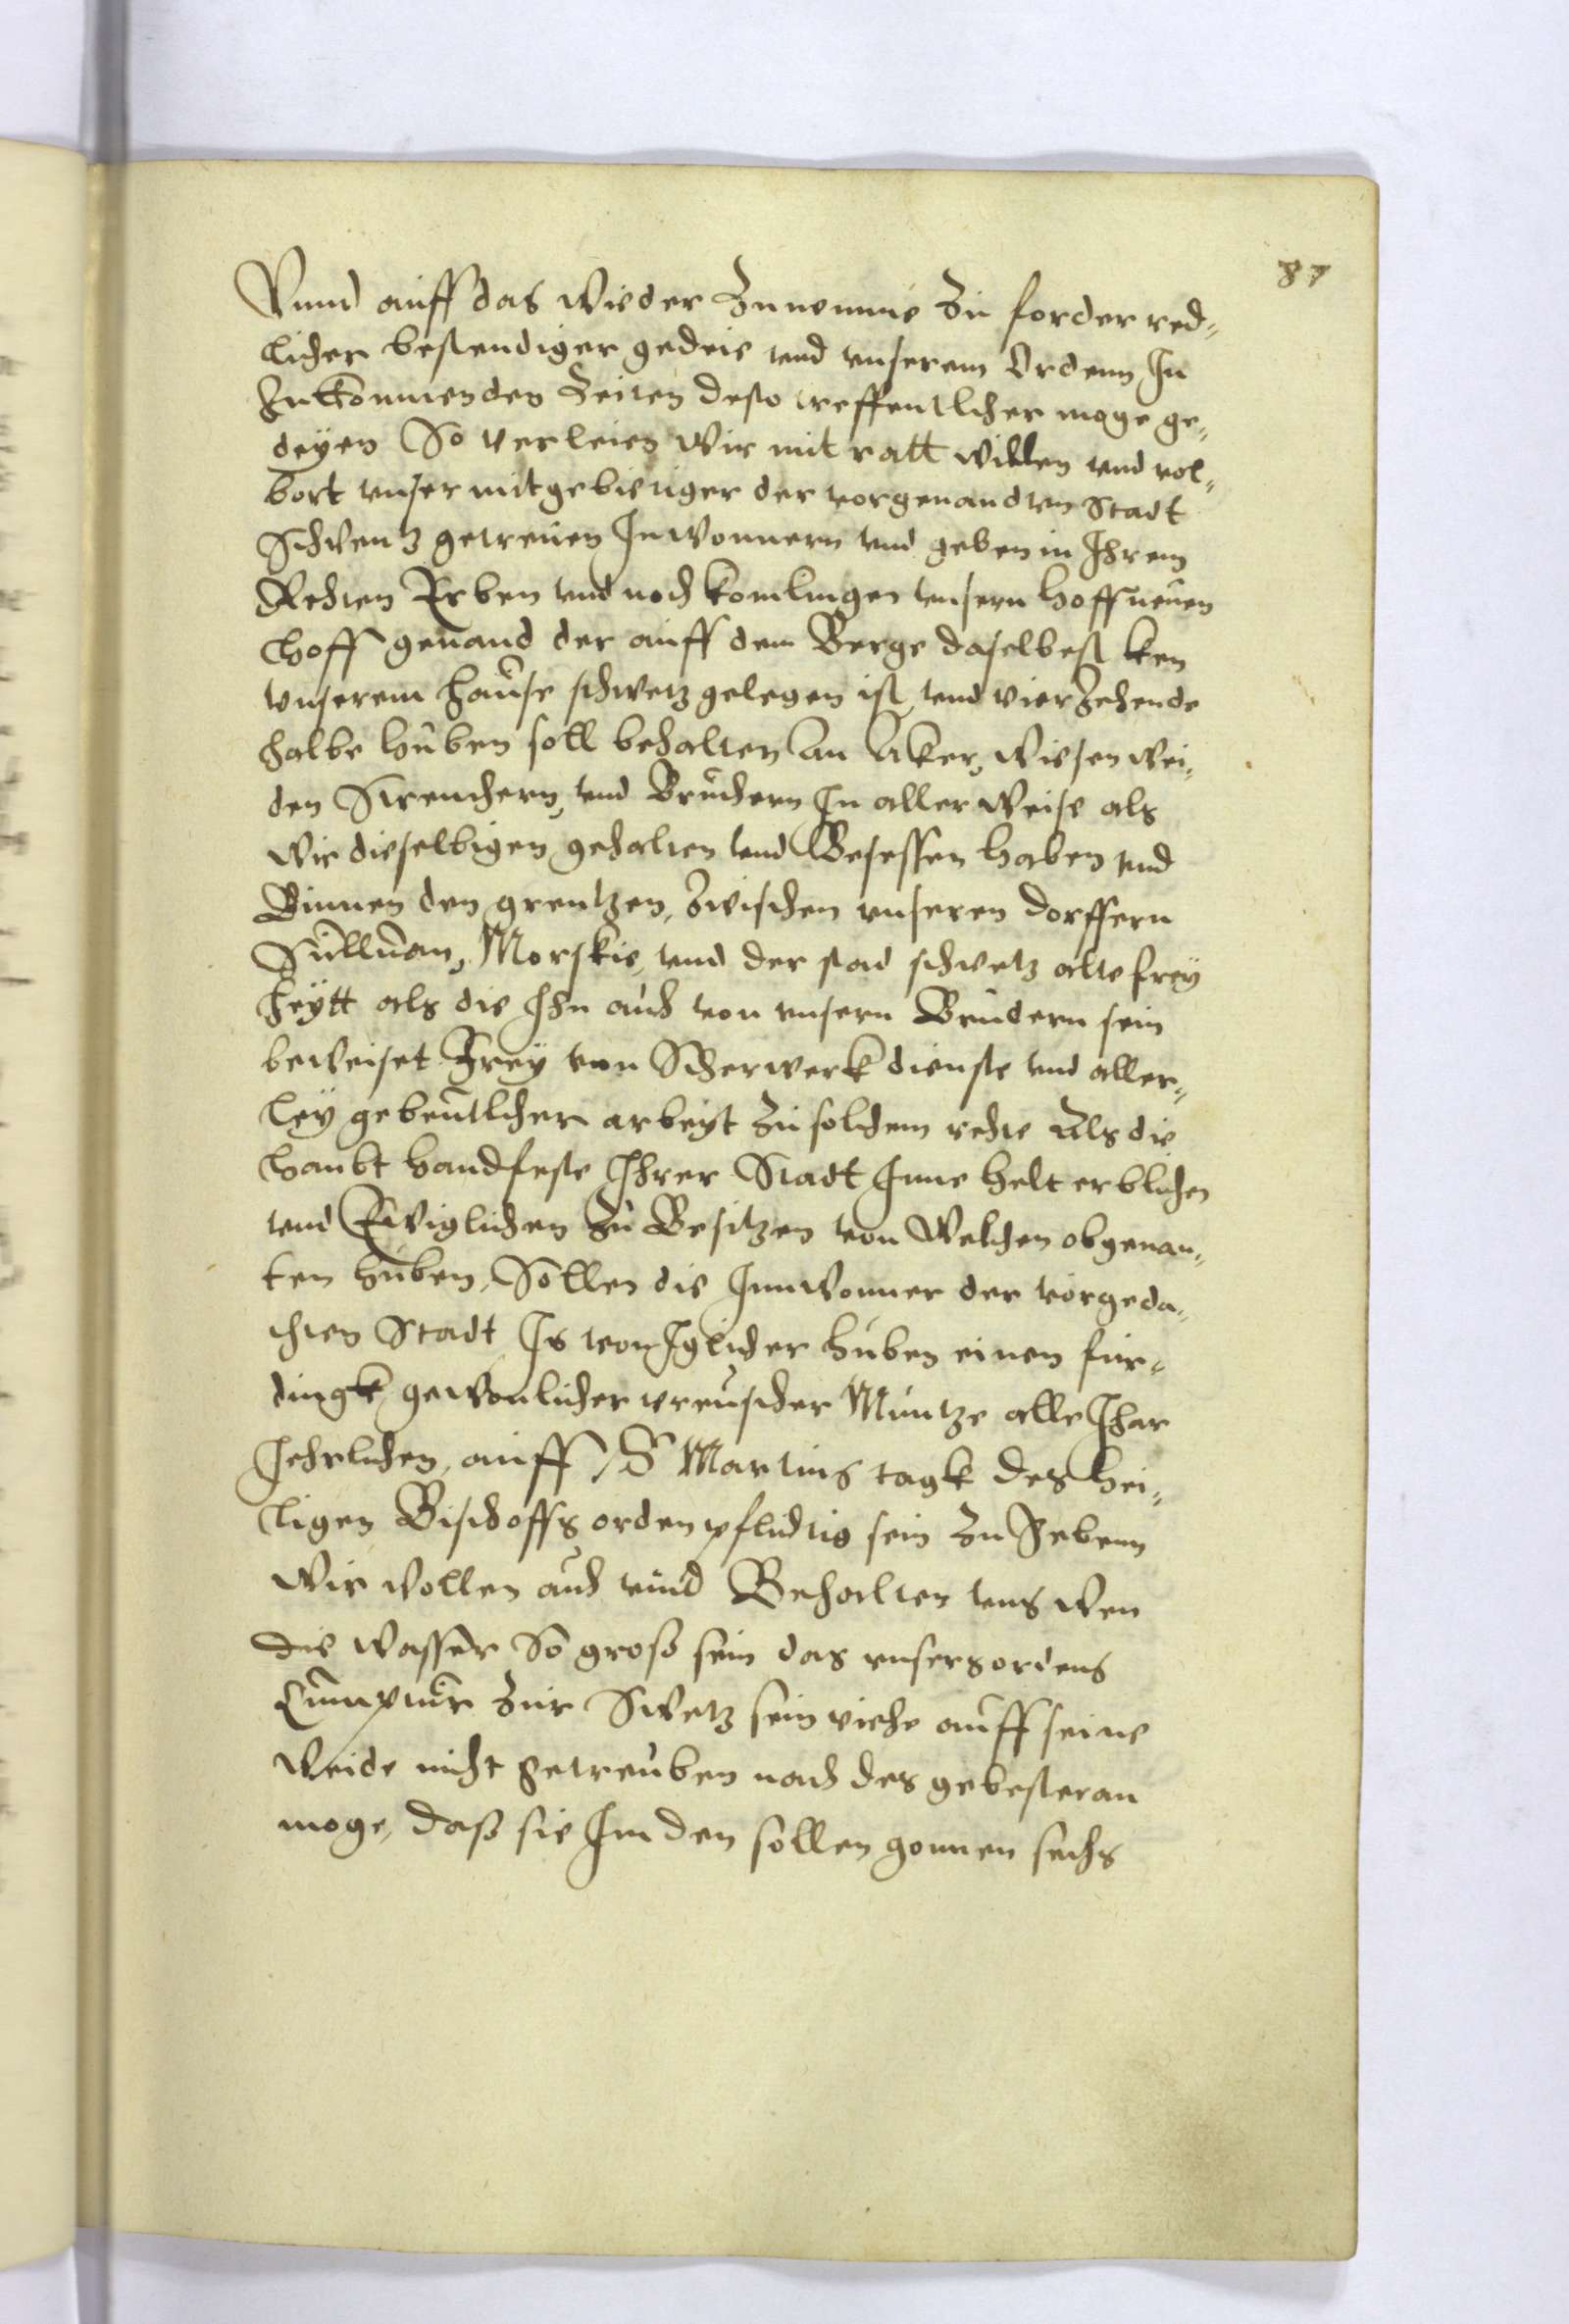 87
Vnnd auff das wieder Zunemme Zu forder red„
licher bestendiger gedeie vnd vnserem Ordenn In
Zukommenden Zeiten desto treffentlicher moge ge„
deÿen So verleien wir mit ratt willen vnd vol„
bort vnser mitgebietiger der vorgenandten Stadt
Schwentz getreuen Inwonnern vnd geben in Ihrem
Rechten Erben vnd noch komlingen vnsern Hoff neuen
Hoff genand der auff dem Berge daselbest ken
vnserem hause schwetz gelegen ist vnd vierzehende
halbe huben soll behalten an Aker, wiesen wei„
den Streuchern, vnd Bruchern In aller weise als
wir dieselbigen gehalten vnd Besessen haben vnd
Binnen den grentzen, Zwischen vnseren dorffern
Sullnan, Morskie, vnd der stad schwetz alte freÿ
heÿtt als die Ihn auch von vnsern Brudern sein
beweiset Freÿ von Scherwerk dienste vnd aller„
leÿ gebeutlicher arbeÿt Zu solchem rechte Als die
haubt handfeste Ihrer Stadt Inne helt erblichen
vnd Ewiglichen Zu Besitzen von Welchen obgenan„
ten huben, Sollen die Innwonner der vorgeda„
chten Stadt Je von Iglicher huben einen fier„
dingk, gewonlicher preuscher Muntze alle Ihar
Jehrlichen, auff S Martins tagk des hei„
ligen Bischoffs orden pflichtig sein Zu Gebenn
Wir wollen auch vnnd Behalten vns wen
die wasser So gross sein das vnsers ordens
Cumptur Zur Swetz sein viehe auff seine
weide nicht getreuben noch des gebesteran
moge, dass sie Im den sollen gonnen sechs